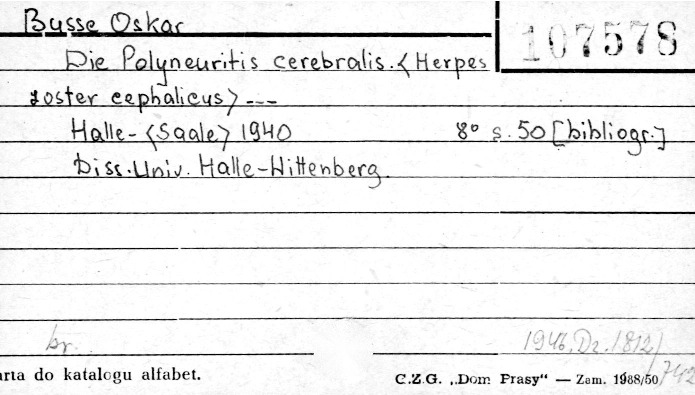 Busse Oskar
107578
Die Polyneuritis cerebralis <Herpes
zoster cephalicus> ---
Halle- <Saale> 1940 8° s. 50 [bibliogr.]
Diss. Univ. Halle-Wittenberg.
br. 1946, Dz. 1812/
742
arta do katalogu alfabet. C.Z.G. „Dom Prasy“ — Zam. 1988/50